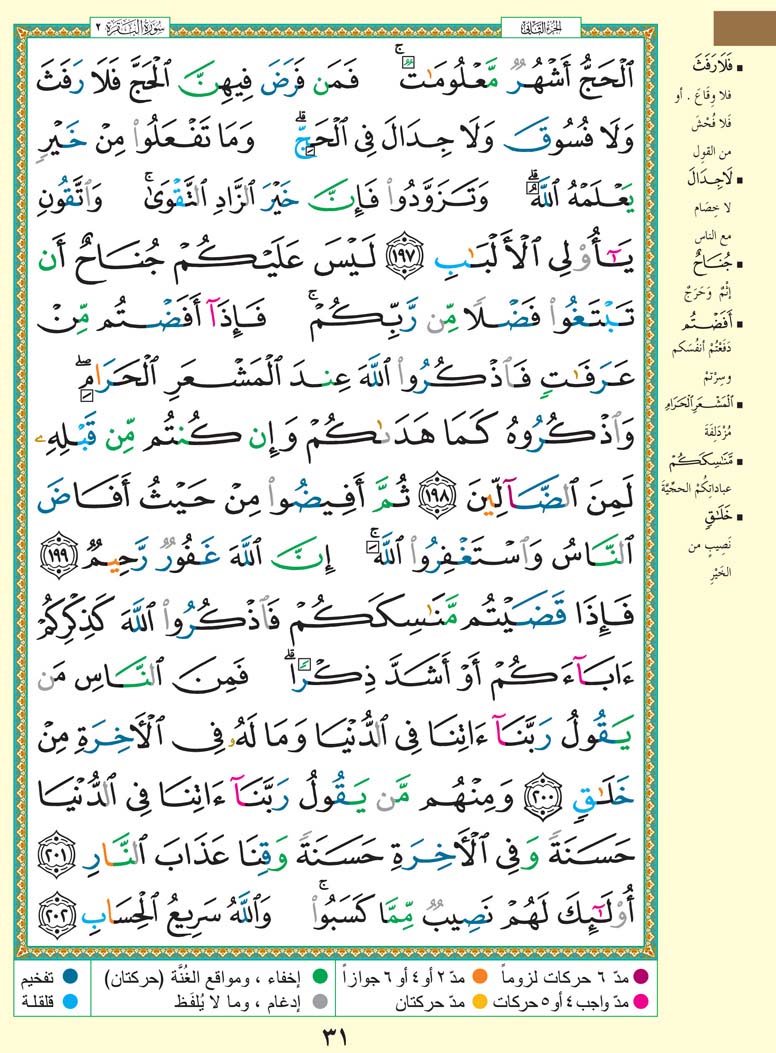 الجزء الثاني
سورة البقرة ٢
ٱلْحَجُّ أَشْهُرٌ مَّعْلُومَٰتٌ ۚ فَمَن فَرَضَ فِيهِنَّ ٱلْحَجَّ فَلَا رَفَثَ
وَلَا فُسُوقَ وَلَا جِدَالَ فِى ٱلْحَجِّ ۗ وَمَا تَفْعَلُوا۟ مِنْ خَيْرٍ
يَعْلَمْهُ ٱللَّهُ ۗ وَتَزَوَّدُوا۟ فَإِنَّ خَيْرَ ٱلزَّادِ ٱلتَّقْوَىٰ ۚ وَٱتَّقُونِ
يَٰٓأُو۟لِى ٱلْأَلْبَٰبِ ١٩٧ لَيْسَ عَلَيْكُمْ جُنَاحٌ أَن
تَبْتَغُوا۟ فَضْلًا مِّن رَّبِّكُمْ ۚ فَإِذَآ أَفَضْتُم مِّنْ
عَرَفَٰتٍ فَٱذْكُرُوا۟ ٱللَّهَ عِندَ ٱلْمَشْعَرِ ٱلْحَرَامِ ۖ
وَٱذْكُرُوهُ كَمَا هَدَىٰكُمْ وَإِن كُنتُم مِّن قَبْلِهِۦ
لَمِنَ ٱلضَّآلِّينَ ١٩٨ ثُمَّ أَفِيضُوا۟ مِنْ حَيْثُ أَفَاضَ
ٱلنَّاسُ وَٱسْتَغْفِرُوا۟ ٱللَّهَ ۚ إِنَّ ٱللَّهَ غَفُورٌ رَّحِيمٌ ١٩٩
فَإِذَا قَضَيْتُم مَّنَٰسِكَكُمْ فَٱذْكُرُوا۟ ٱللَّهَ كَذِكْرِكُمْ
ءَابَآءَكُمْ أَوْ أَشَدَّ ذِكْرًا ۗ فَمِنَ ٱلنَّاسِ مَن
يَقُولُ رَبَّنَآ ءَاتِنَا فِى ٱلدُّنْيَا وَمَا لَهُۥ فِى ٱلْأَخِرَةِ مِنْ
خَلَٰقٍ ٢٠٠ وَمِنْهُم مَّن يَقُولُ رَبَّنَآ ءَاتِنَا فِى ٱلدُّنْيَا
حَسَنَةً وَفِى ٱلْأَخِرَةِ حَسَنَةً وَقِنَا عَذَابَ ٱلنَّارِ ٢٠١
أُو۟لَٰٓئِكَ لَهُمْ نَصِيبٌ مِّمَّا كَسَبُوا۟ ۚ وَٱللَّهُ سَرِيعُ ٱلْحِسَابِ ٢٠٢
▪ فَلَا رَفَثَ
فلا وِقَاعَ . أو
فَلا فُحْشَ
من القول
▪ لَا جِدَالَ
لا خِصَام
مع الناس
▪ جُنَاحٌ
إثْمٌ وَحَرَجٌ
▪ أَفَضْتُم
دَفَعْتُمْ أنفُسَكم
وسِرْتمْ
▪ ٱلْمَشْعَرِ ٱلْحَرَامِ
مُزْدَلِفَة
▪ مَّنَٰسِكَكُمْ
عباداتِكُم الحجِّيَّة
▪ خَلَٰقٍ
نَصِيبٍ من
الخَيْرِ
مدّ ٦ حركات لزوماً
مدّ ٢ أو ٤ أو ٦ جوازاً
إخفاء ، ومواقع الغُنَّة (حركتان)
تفخيم
مدّ واجب ٤ أو ٥ حركات
مدّ حركتان
إدغام ، وما لا يُلفَظ
قلقلة
٣١